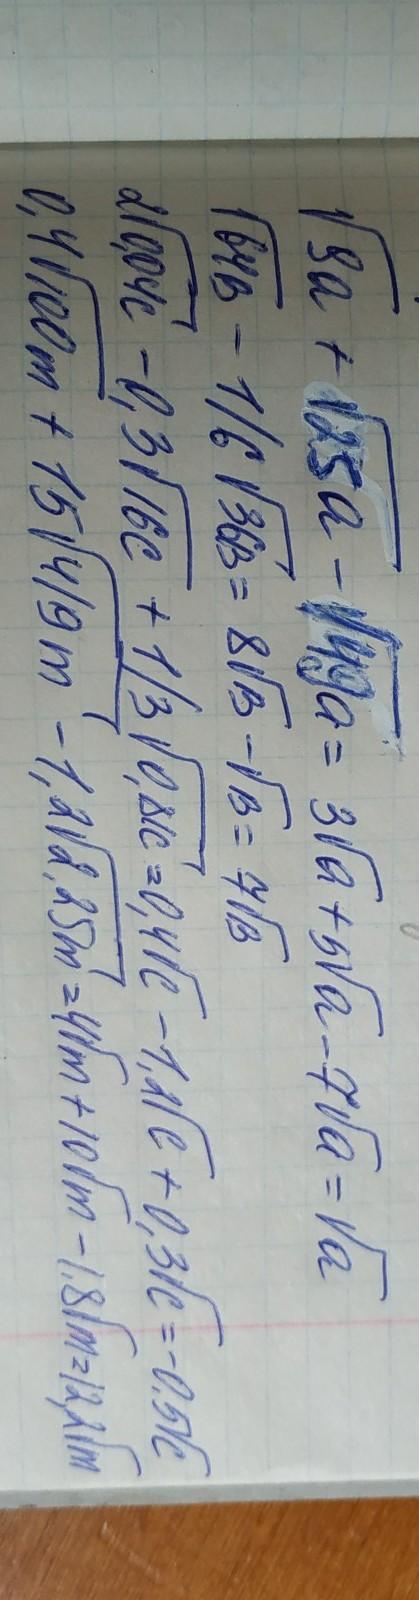 √9a + √25a - √49a = 3√a + 5√a - 7√a = √a
√64в - 1/6√36в = 8√в - √в = 7√в
2√0,04c - 0,3√16c + 1/3√0,81c = 0,4√c - 1,2√c + 0,3√c = -0.5√c
0,4√100m + 15√4/9m - 1,2√2,25m = 4√m + 10√m - 1.8√m = 12,2√m